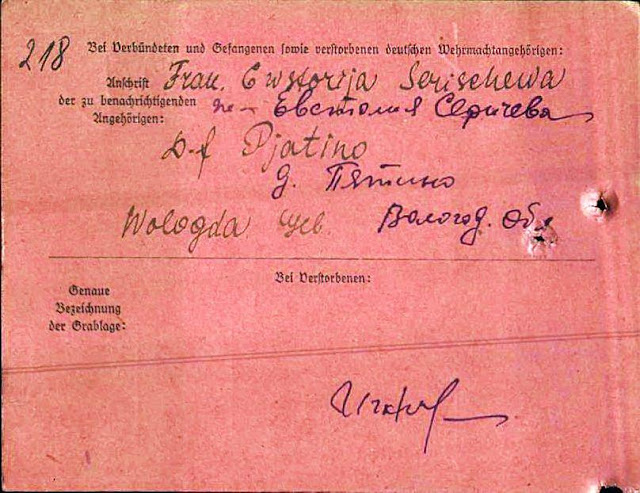 218
Bei Verbündeten und Gefangenen sowie verstorbenen deutschen Wehrmachtangehörigen:
Anschrift Frau. Ewstorija Serischewa
der zu benachrichtigenden Евстолия Серичева
Angehörigen:
D-f Pjatino
д. Пятино
Wologda Geb. Вологод. обл
Bei Verstorbenen:
Genaue
Bezeichnung
der Grablage: